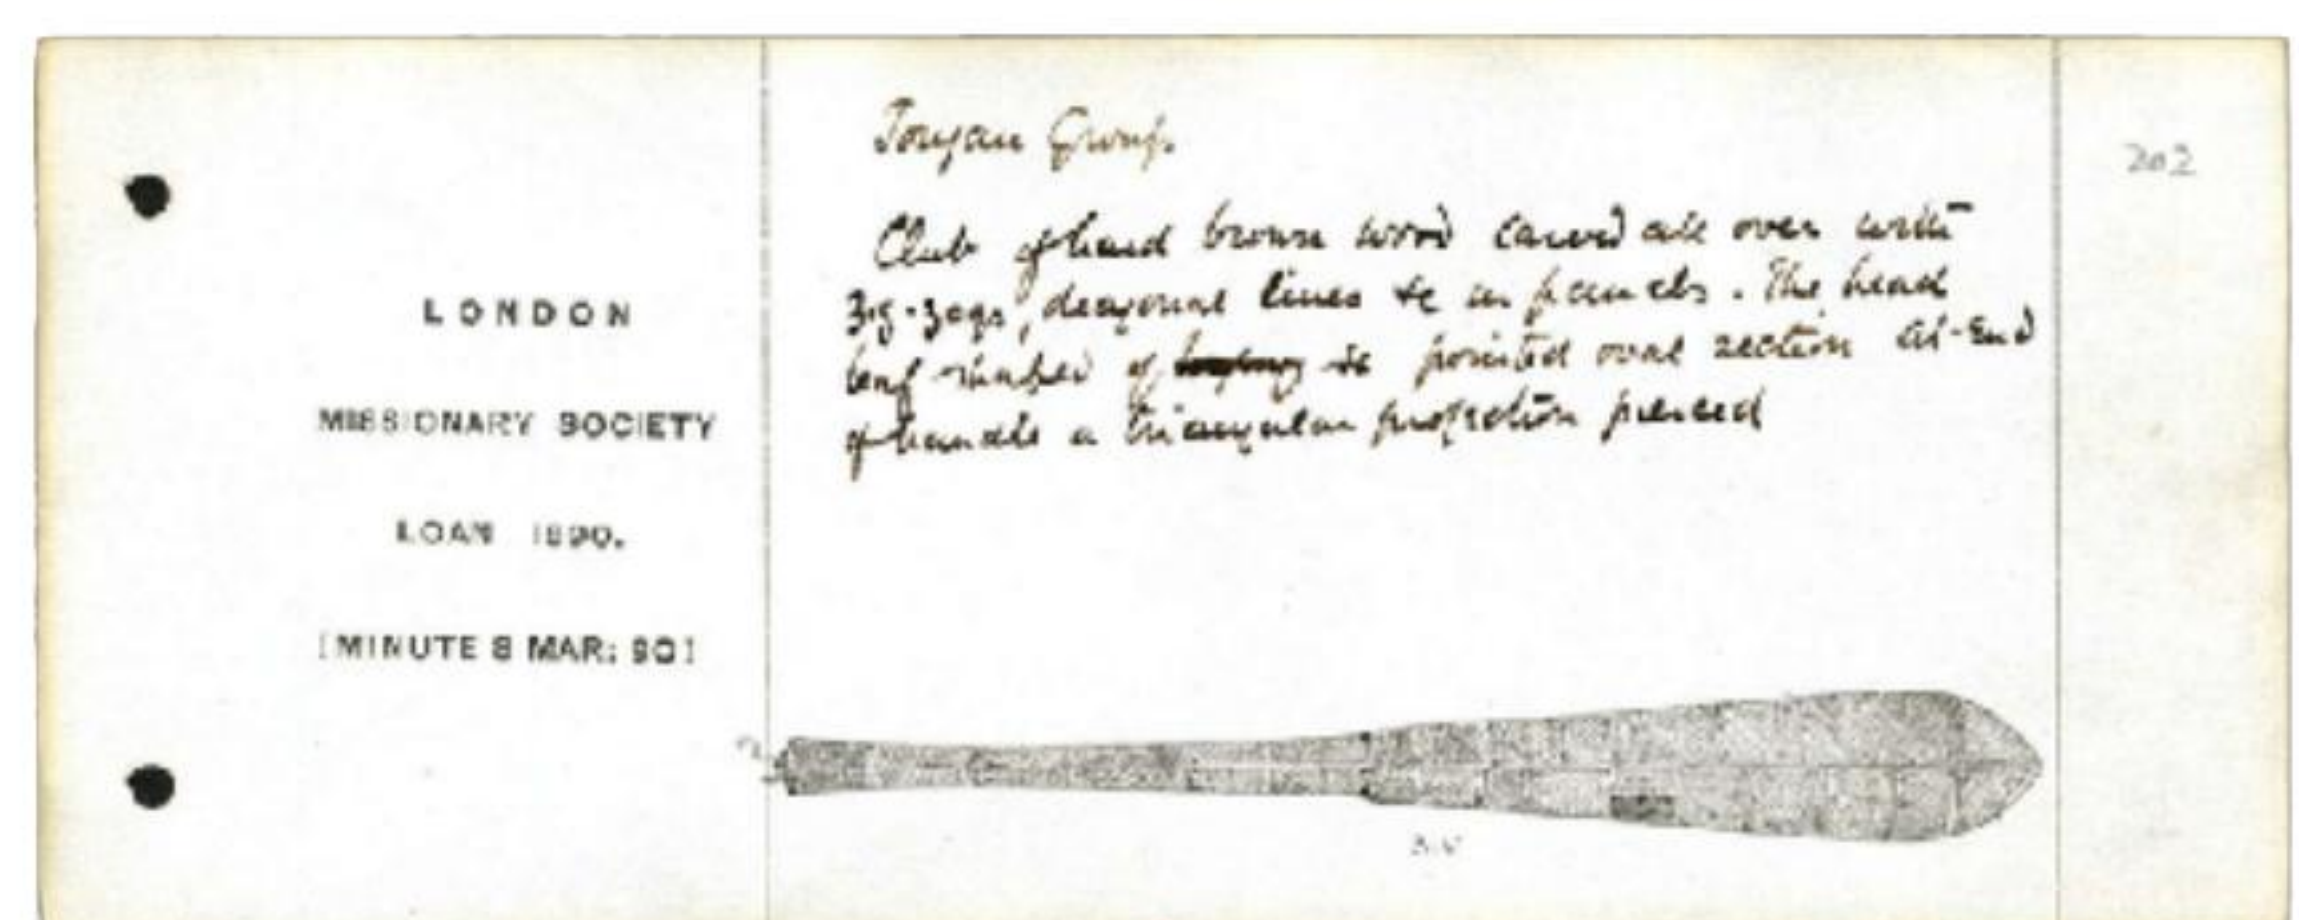 LONDON
MISSIONARY SOCIETY
LOAN 1890.
[MINUTE 8 MAR: 90]
Tongan Group.
Club of hard brown wood carved all over with
zig-zags, diagonal lines &c in panels. The head
leaf-shaped of pointed oval section At end
of handle a triangular projection pierced
202